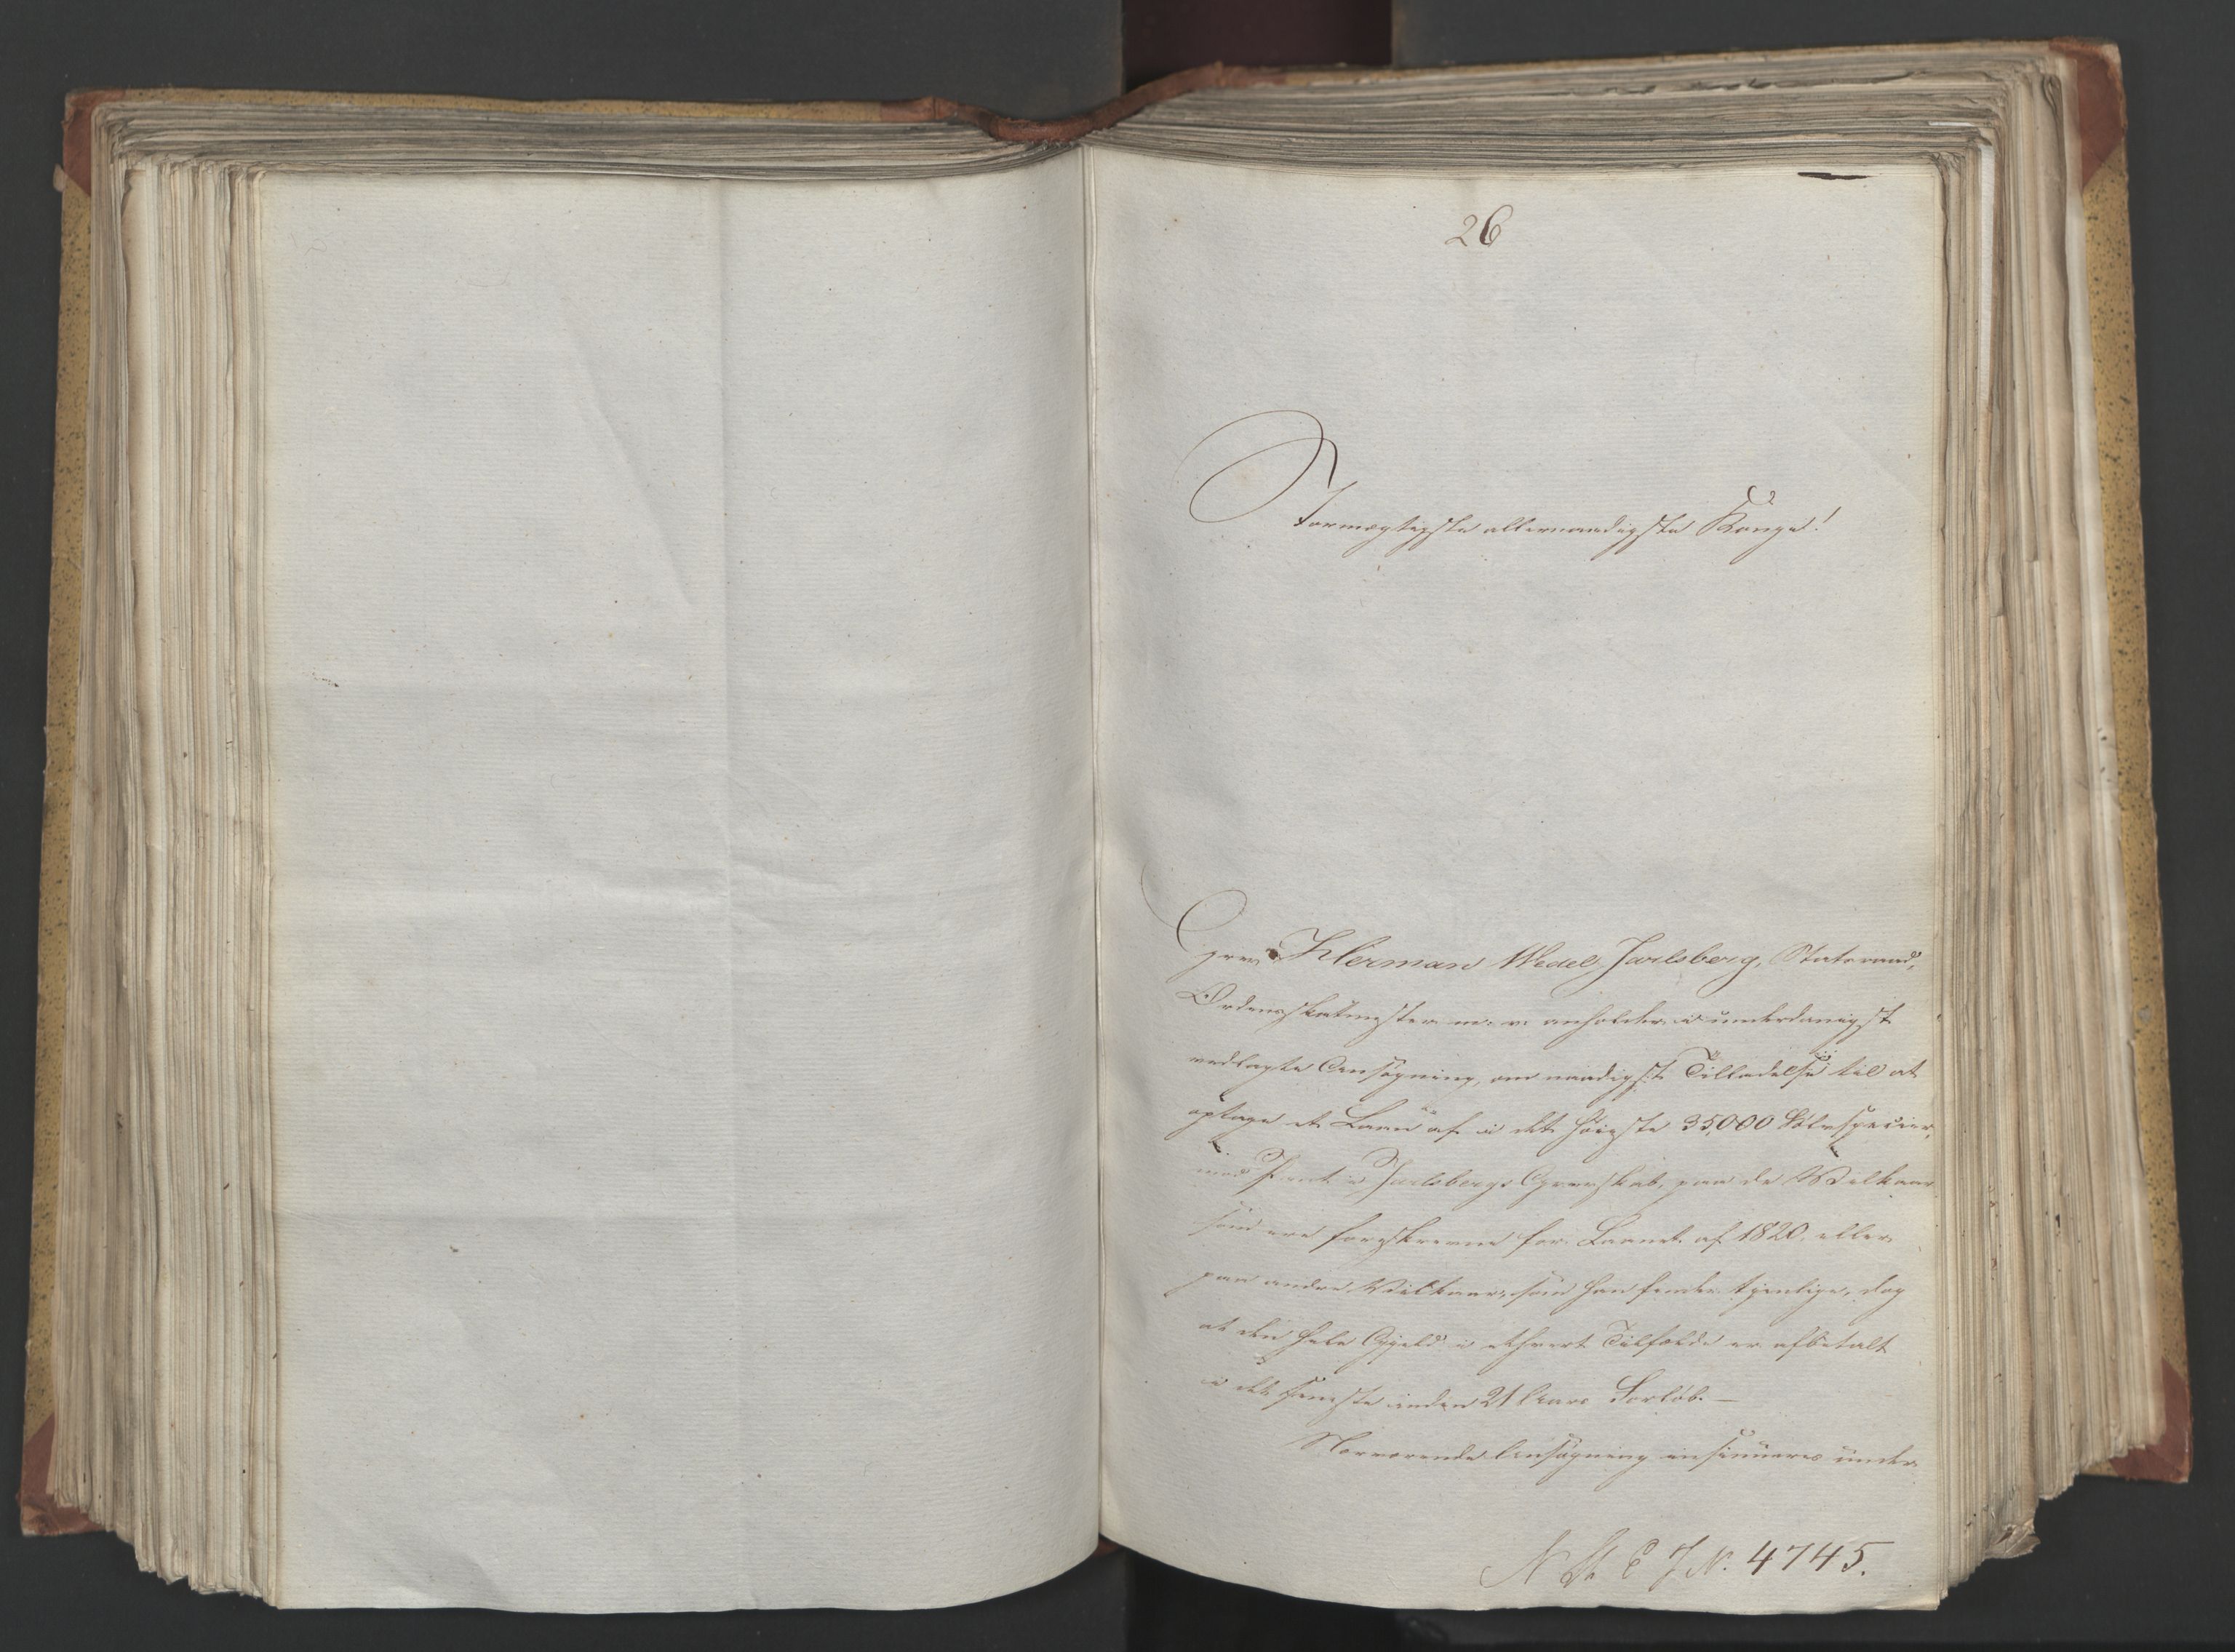 26
Stormægtigste allernaadigste Konge!
Greve Herman Wedel Jarlsberg, Statsraad,
Ordensskatmester m: v: anholder i underdanigst
vedlagte Ansøgning, om naadigst Tilladelse til at
optage et Laan af i det høieste 35,000 Sølvspecier,
med Pant i Jarlsbergs Grevskab, paa de Vilkaar
som ere foreskrevne for Laanet af 1820, eller
paa andre Vilkaar, som han finder tjenlige, dog
at den hele Gjeld i ethvert Tilfælde er afbetalt
i det seneste inden 21 Aars Forløb. —
Nærværende Ansøgning insinueres under
N St E J N. 4745.